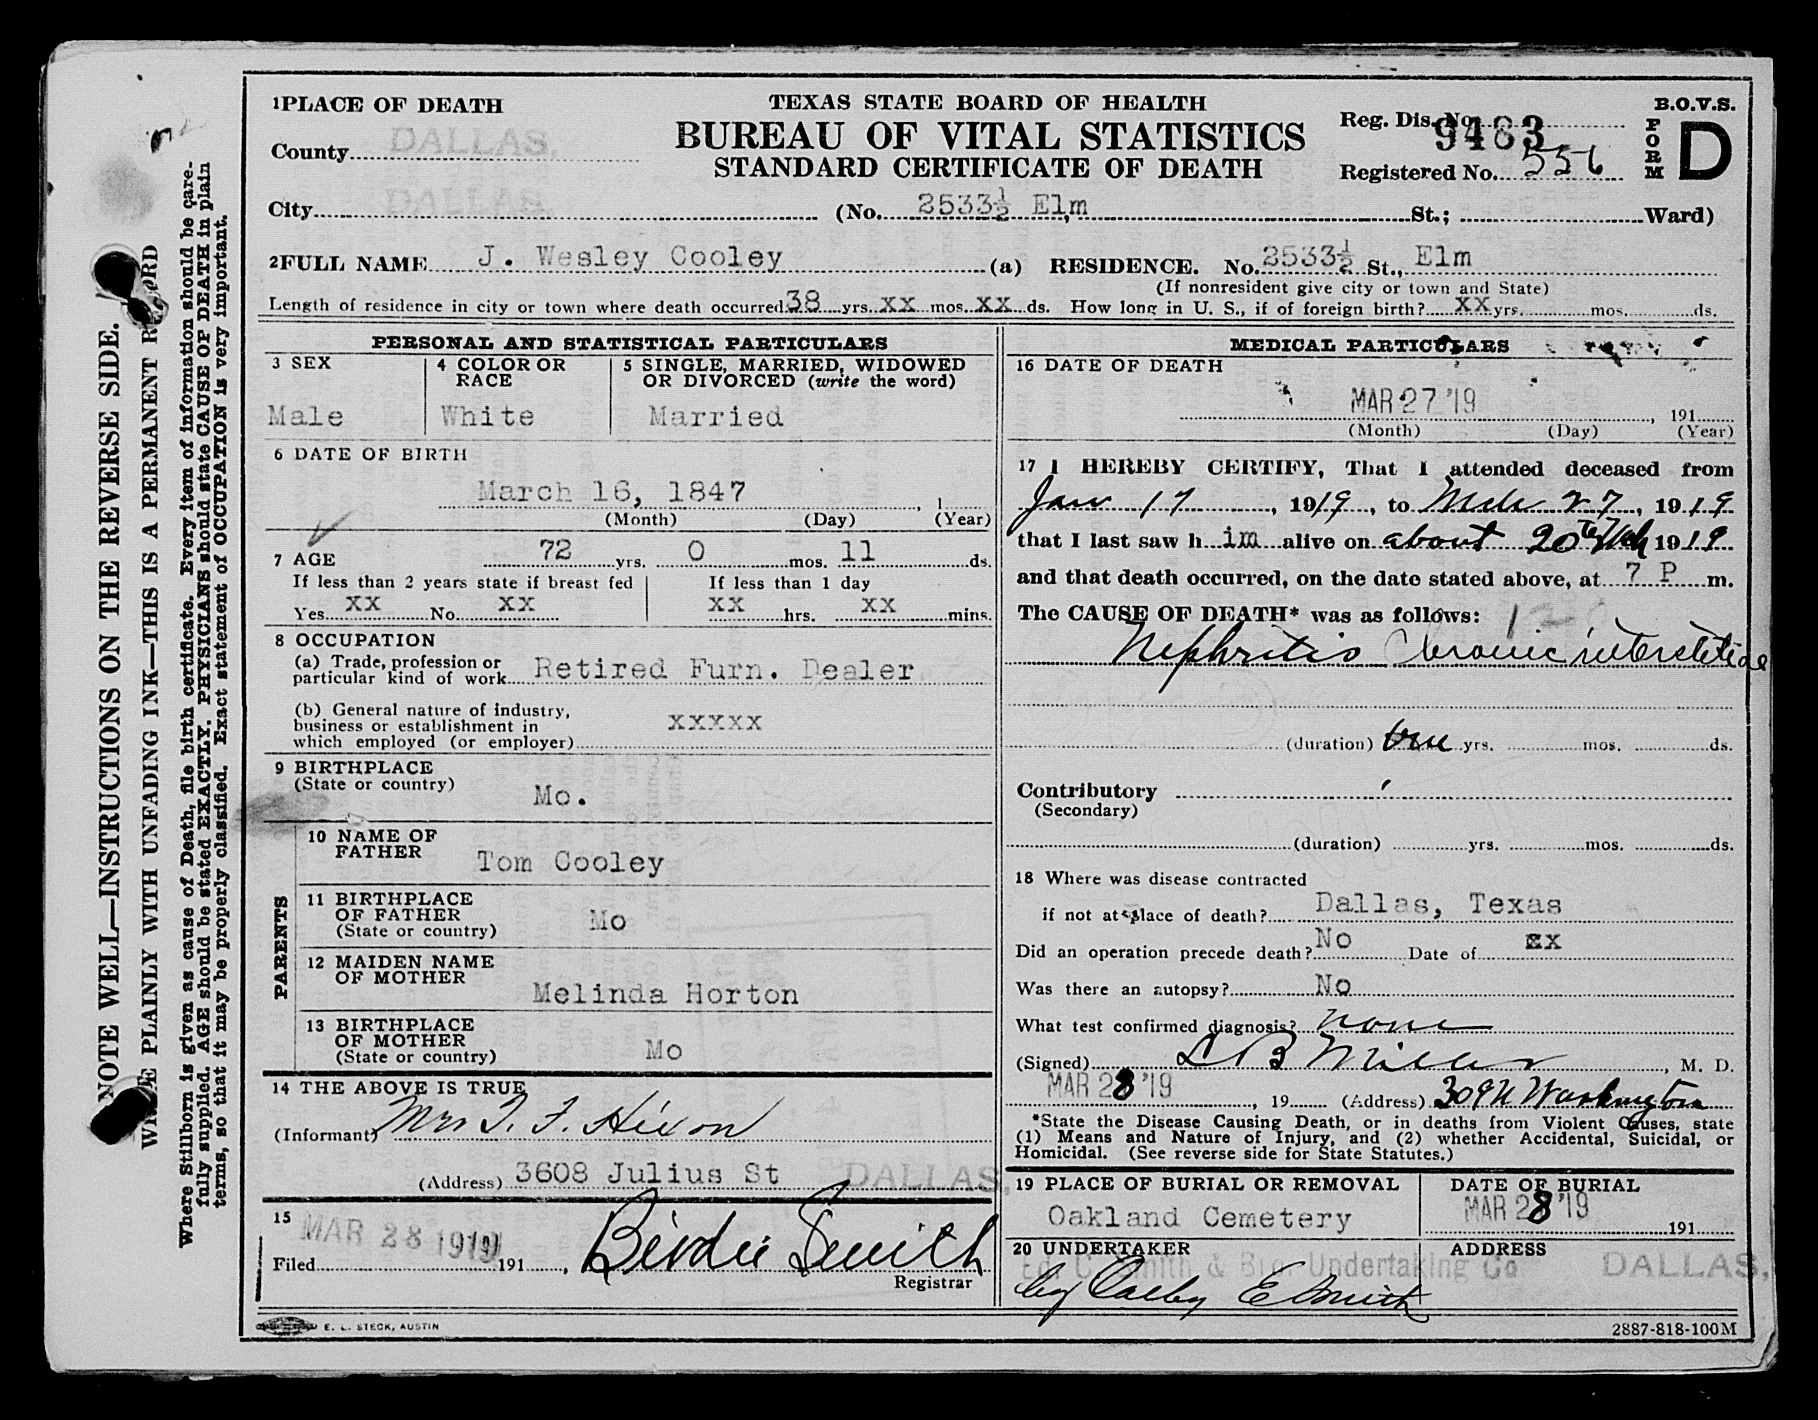 1 PLACE OF DEATH
TEXAS STATE BOARD OF HEALTH
BUREAU OF VITAL STATISTICS
STANDARD CERTIFICATE OF DEATH
B.O.V.S.
FORM D
Reg. Dis. No. 9483
Registered No. 556
County DALLAS,
City DALLAS, (No. 2533½ Elm, St.; Ward)
2 FULL NAME J. Wesley Cooley (a) RESIDENCE. No. 2533½ St., Elm
(If nonresident give city or town and State)
Length of residence in city or town where death occurred 38 yrs. xx mos. xx ds. How long in U. S., if of foreign birth? xx yrs. mos. ds.
PERSONAL AND STATISTICAL PARTICULARS
3 SEX
Male
4 COLOR OR RACE
White
5 SINGLE, MARRIED, WIDOWED
OR DIVORCED (write the word)
Married
6 DATE OF BIRTH
March 16, 1847, 1
(Month) (Day) (Year)
7 AGE 72 yrs. 0 mos. 11 ds.
If less than 2 years state if breast fed
Yes xx No xx
If less than 1 day
xx hrs. xx mins.
8 OCCUPATION
(a) Trade, profession or
particular kind of work Retired Furn. Dealer
(b) General nature of industry,
business or establishment in
which employed (or employer) xxxxx
9 BIRTHPLACE
(State or country) Mo.
PARENTS
10 NAME OF
FATHER Tom Cooley
11 BIRTHPLACE
OF FATHER
(State or country) Mo
12 MAIDEN NAME
OF MOTHER
Melinda Horton
13 BIRTHPLACE
OF MOTHER
(State or country) Mo
14 THE ABOVE IS TRUE
(Informant) Mrs T. F. Hixon
(Address) 3608 Julius St DALLAS,
15
Filed MAR 28 1919 191 , Birdie Smith
Registrar
MEDICAL PARTICULARS
16 DATE OF DEATH
MAR 27 '19 , 191
(Month) (Day) (Year)
17 I HEREBY CERTIFY, That I attended deceased from
Jan 17, 1919, to Mch 27, 1919
that I last saw him alive on about 20th Mch 1919
and that death occurred, on the date stated above, at 7 P m.
The CAUSE OF DEATH* was as follows:
Nephritis Chronic interstitial
(duration) one yrs. mos. ds.
Contributory
(Secondary)
(duration) yrs. mos. ds.
18 Where was disease contracted
if not at place of death? Dallas, Texas
Did an operation precede death? No Date of xx
Was there an autopsy? No
What test confirmed diagnosis? none
(Signed) L B Miller, M. D.
MAR 28 '19 , 19 (Address) 309 N Washington
*State the Disease Causing Death, or in deaths from Violent Causes, state
(1) Means and Nature of Injury, and (2) whether Accidental, Suicidal, or
Homicidal. (See reverse side for State Statutes.)
19 PLACE OF BURIAL OR REMOVAL
Oakland Cemetery
DATE OF BURIAL
MAR 28 '19 191
20 UNDERTAKER
Ed. C. Smith & Bro. Undertaking Co
by Oalby E Smith
ADDRESS
DALLAS,
E. L. STECK, AUSTIN
2887-818-100M
NOTE WELL—INSTRUCTIONS ON THE REVERSE SIDE.
WRITE PLAINLY WITH UNFADING INK—THIS IS A PERMANENT RECORD
Where Stillborn is given as cause of Death, file birth certificate. Every item of information should be care-
fully supplied. AGE should be stated EXACTLY. PHYSICIANS should state CAUSE OF DEATH in plain
terms, so that it may be properly classified. Exact statement of OCCUPATION is very important.